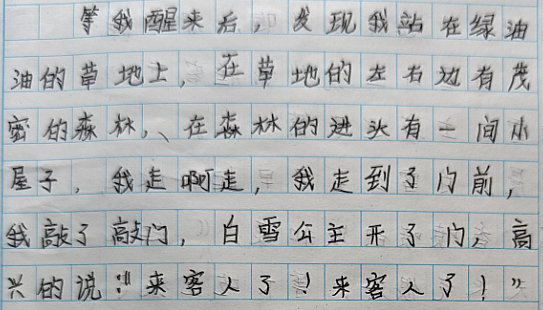 等我醒来后，发现我站在绿油
油的草地上，在草地的左右边有茂
密的森林，、在森林的进头有一间小
屋子，我走啊走，我走到了门前，
我敲了敲门，白雪公主开了门，高
兴的说：“来客人了！来客人了！”